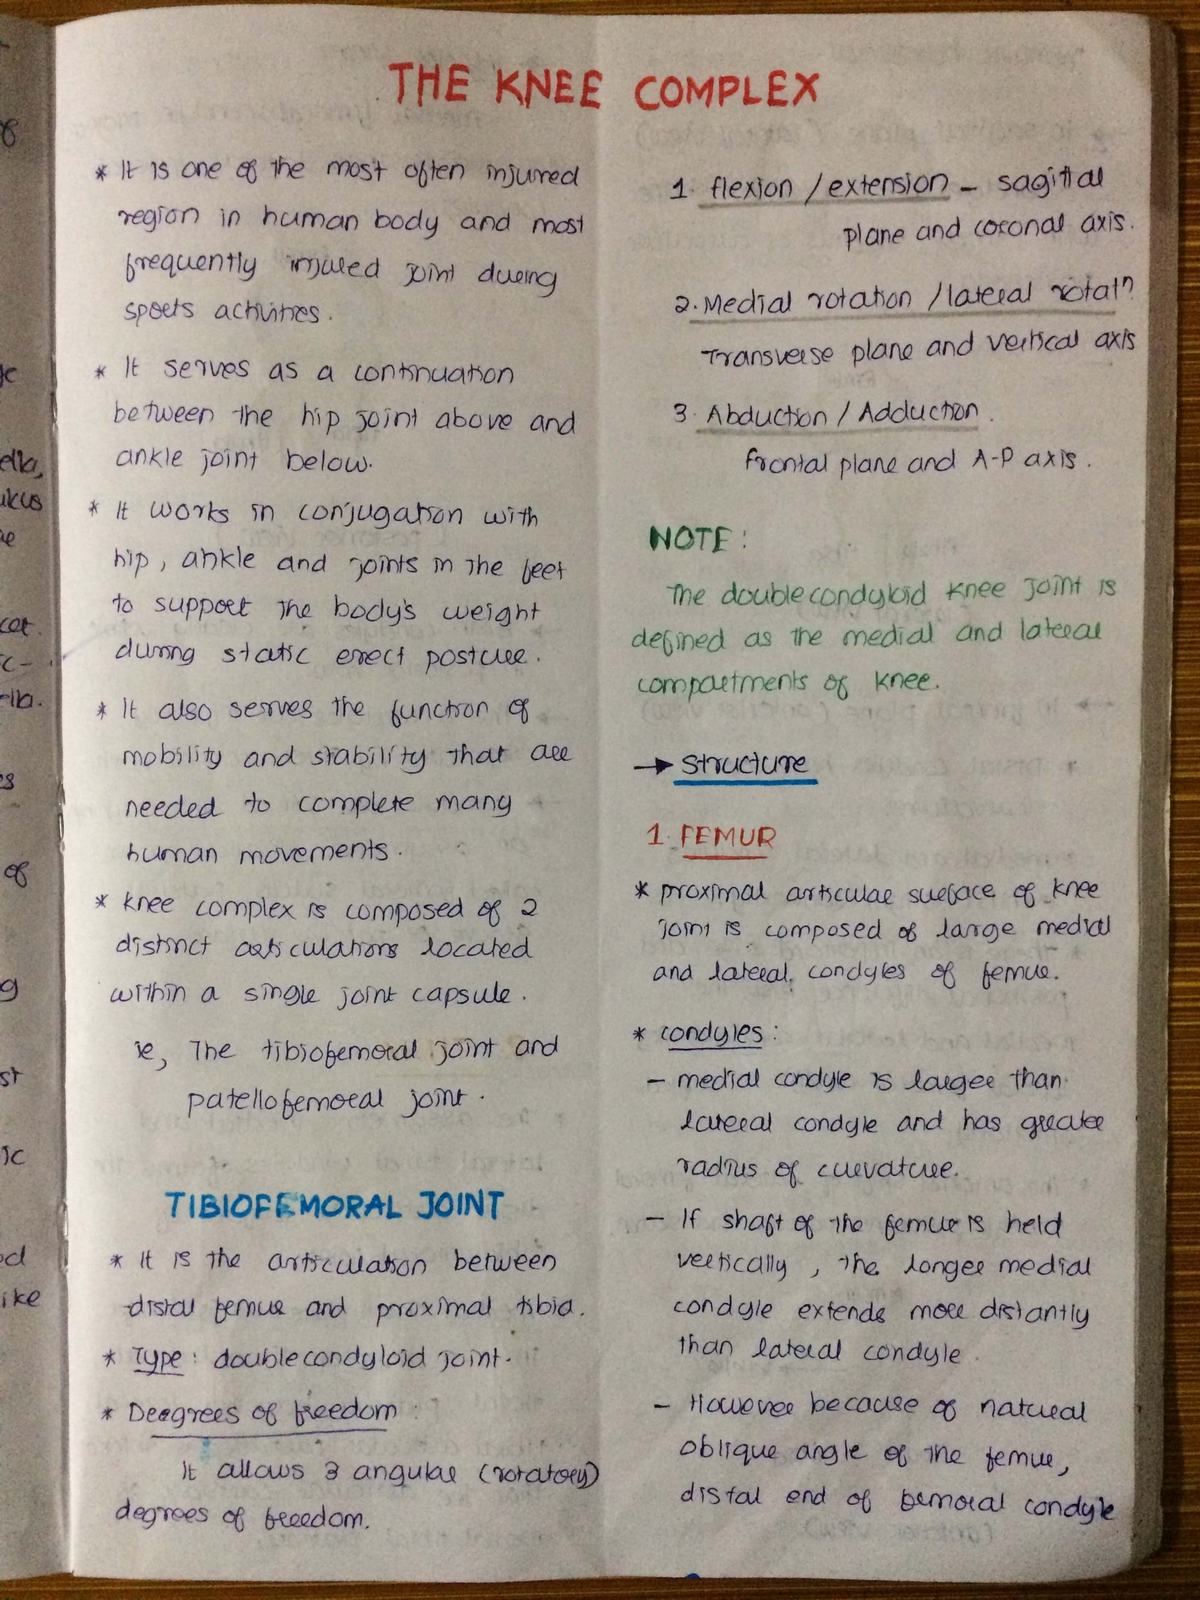 THE KNEE COMPLEX
* It is one of the most often injured
region in human body and most
frequently injured joint during
sports activities.
* It serves as a continuation
between the hip joint above and
ankle joint below.
* It works in conjugation with
hip, ankle and joints in the feet
to support the body's weight
during static erect posture.
* It also serves the function of
mobility and stability that are
needed to complete many
human movements.
* knee complex is composed of 2
distinct articulations located
within a single joint capsule.
ie, The tibiofemoral joint and
patellofemoral joint.
TIBIOFEMORAL JOINT
* It is the articulation between
distal femur and proximal tibia.
* Type: double condyloid joint.
* Deegrees of freedom:
It allows 3 angular (rotatory)
degrees of freedom.
1. flexion / extension - sagittal
plane and coronal axis.
2. Medial rotation / lateral rotatn
Transverse plane and vertical axis
3. Abduction / Adduction.
frontal plane and A-P axis.
NOTE:
The double condyloid knee joint is
defined as the medial and lateral
compartments of knee.
→ Structure
1. FEMUR
* proximal articular surface of knee
joint is composed of large medial
and lateral condyles of femur.
* condyles:
- medial condyle is larger than
lateral condyle and has greater
radius of curvature.
- If shaft of the femur is held
vertically, the longer medial
condyle extends more distantly
than lateral condyle.
- However because of natural
oblique angle of the femur,
distal end of femoral condyle
ella,
of
ella.
of
ic
ike